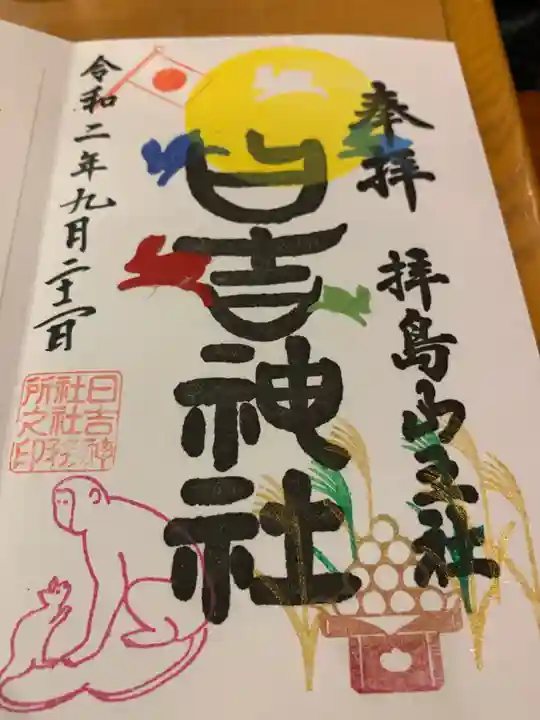 奉拝 拝島山王社
日吉神社
令和二年九月二十一日
日吉神
社社務
所之印